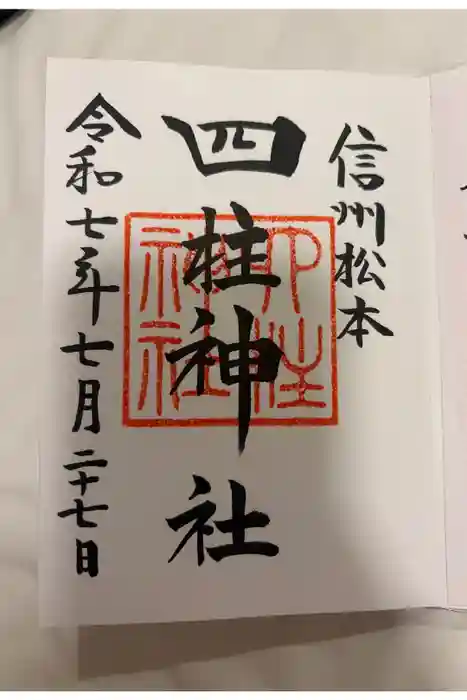 信州松本
四柱神社
四柱
神社
令和七年七月二十七日